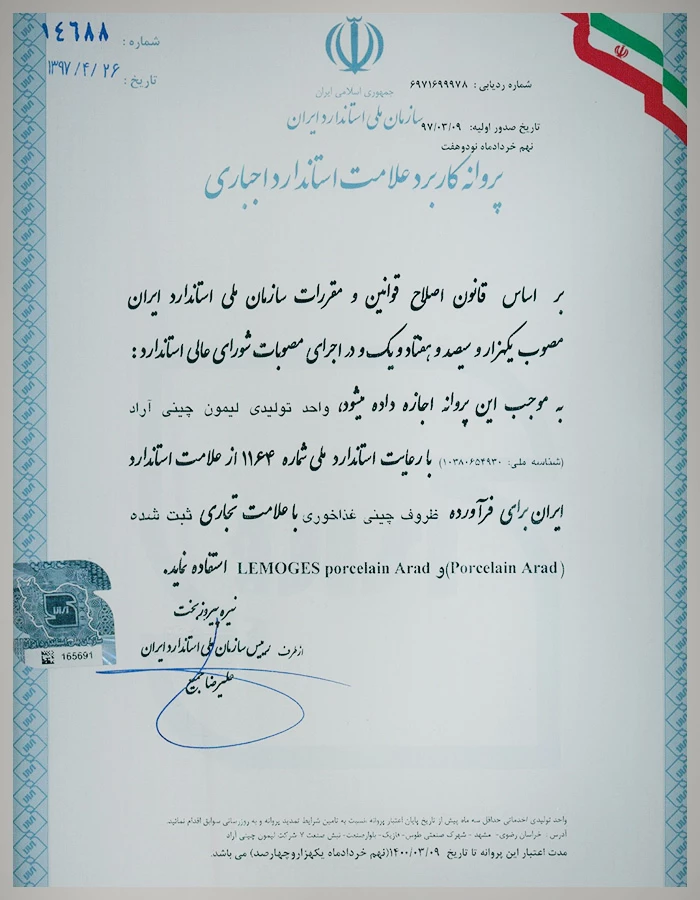 شماره : ۱۴۶۸۸
تاریخ : ۱۳۹۷/۴/۲۶
جمهوری اسلامی ایران
سازمان ملی استاندارد ایران
شماره ردیابی : ۶۹۷۱۶۹۹۹۷۸
تاریخ صدور اولیه: ۹۷/۰۳/۰۹
نهم خردادماه نودوهفت
پروانه کاربرد علامت استاندارد اجباری
بر اساس قانون اصلاح قوانین و مقررات سازمان ملی استاندارد ایران
مصوب یکهزار و سیصد و هفتاد و یک و در اجرای مصوبات شورای عالی استاندارد :
به موجب این پروانه اجازه داده میشود، واحد تولیدی لیمون چینی آراد
(شناسه ملی: ۱۰۳۸۰۶۵۴۹۳۰) با رعایت استاندارد ملی شماره ۱۱۶۴ از علامت استاندارد
ایران برای فرآورده ظروف چینی غذاخوری با علامت تجاری ثبت شده
(Porcelain Arad) و LEMOGES porcelain Arad استفاده نماید.
نیره پیروزبخت
از طرف رییس سازمان ملی استاندارد ایران
علیرضا
165691
واحد تولیدی /خدماتی حداقل سه ماه پیش از تاریخ پایان اعتبار پروانه نسبت به تامین شرایط تمدید پروانه و به روزرسانی سوابق اقدام نمائید.
آدرس : خراسان رضوی- مشهد - شهرک صنعتی طوس- فازیک- بلوارصنعت- نبش صنعت ۷ شرکت لیمون چینی آراد
مدت اعتبار این پروانه تا تاریخ ۱۴۰۰/۰۳/۰۹(نهم خردادماه یکهزاروچهارصد) می باشد.